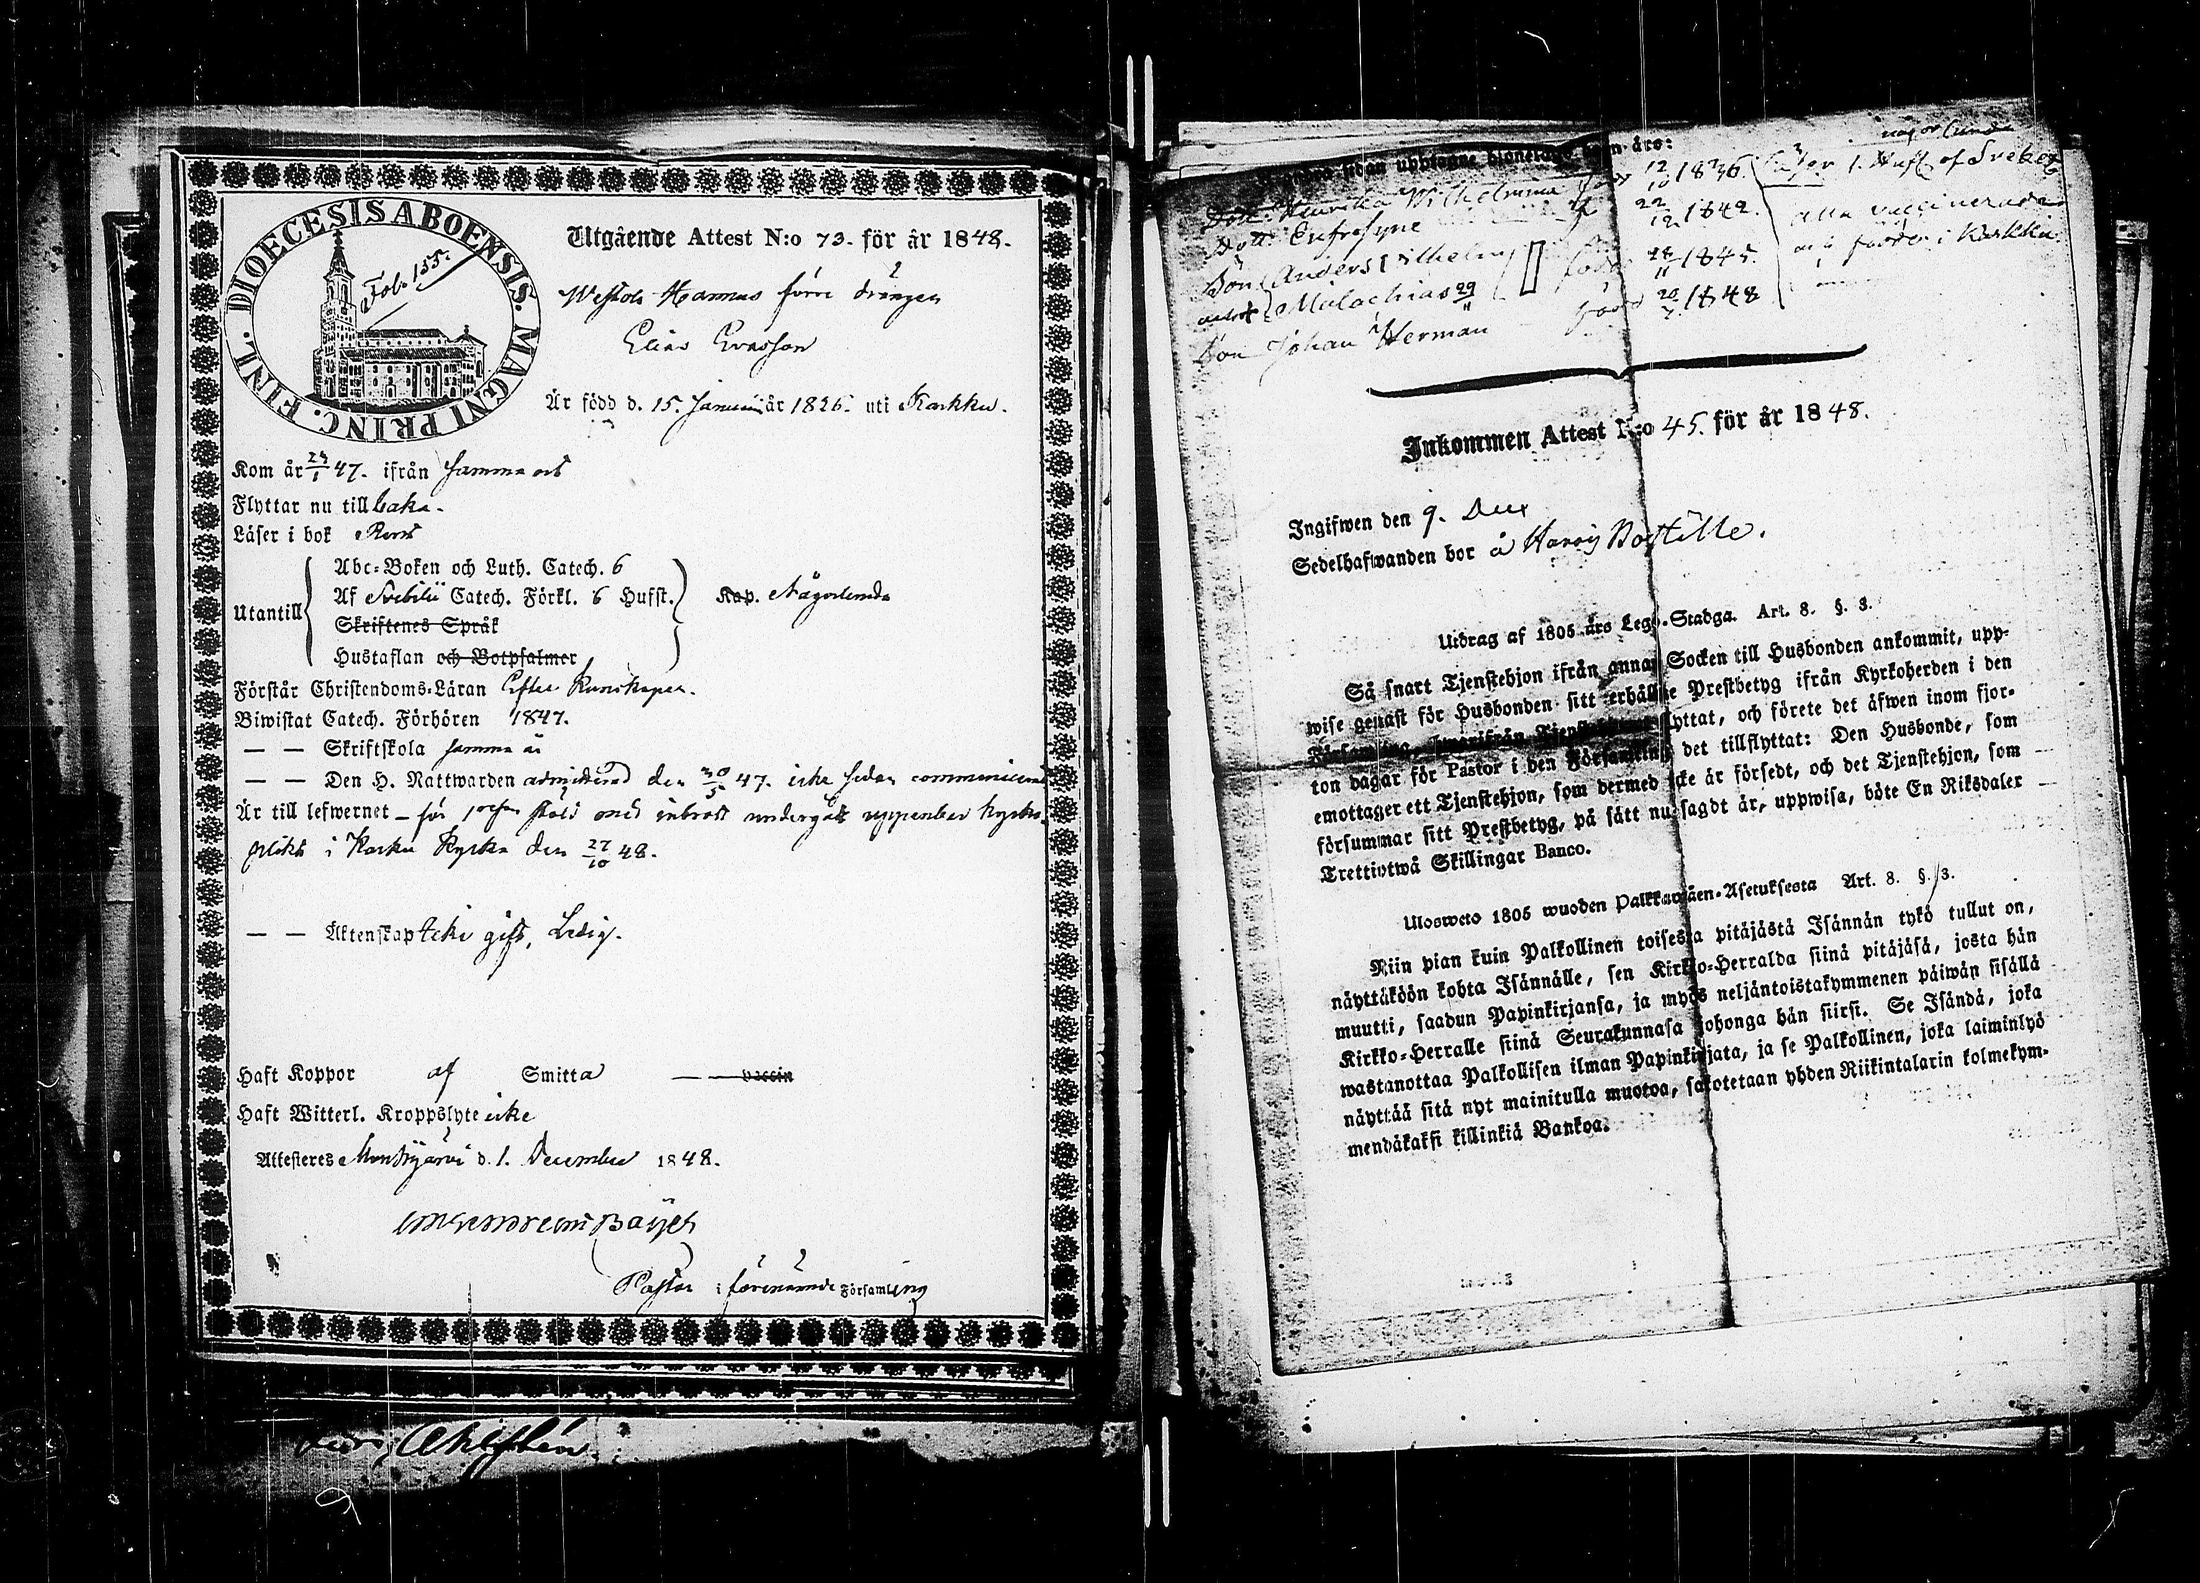 DIOECESIS ABOENSIS. MAGNI PRINC. FINL.
Fol. 155.
Utgående Attest N:o 73. för år 1848.
Hannus förre drängen
Elias Evasson
Är född d. 15. Januarii år 1826. uti Karkku.
Kom år 24/1 47. ifrån samma ort
Flyttar nu till baka.
Läser i bok Rent
Utantill
Abc-Boken och Luth. Catech. 6
Af Svebilii Catech. Förkl. 6 Hufst.
Kap. Någorlunda
Skriftenes Språk
Hustaflan och Botpsalmer
Förstår Christendoms-Läran Efter Kunskapen.
Biwistat Catech. Förhören 1847.
— — Skriftskola samma år
— — Den H. Nattwarden admitterad den 30/5 47. icke sedan communicerat
Är till lefwernet – för stöld med inbrott undergått uppenbar kyrko-
plikt i Karku Kyrka den 27/10 48.
— — Äktenskap Icke gift, Ledig.
Haft Koppor af Smitta — — vaccin
Haft Witterl. Kroppslyte icke
Attesteras Mouhijärvi d. 1. December 1848.
Pastor i förenämnde Församling
sidan upptagne
Dott. Henrika Wilhelmina född 12/10 1836.
Dott. Eufrosyne 22/12 1842.
Son Anders Wilhelm född 28/11 1845.
Malachias 29/11
Son Johan Herman född 20/7 1848
Läser 1. Hufst. af Svebel.
Alla vaccinerade
och födde i Karkku
Inkommen Attest N:o 45. för år 1848.
Ingifwen den 9. Dec
Sedelhafwanden bor å
Utdrag af 1805 års Lego-Stadga. Art. 8. §. 3.
Så snart Tjenstehjon ifrån annan Socken till Husbonden ankommit, upp-
wise genast för Husbonden sitt erhållne Prestbetyg ifrån Kyrkoherden i den
Församling, hwarifrån Tjenstehjonet flyttat, och förete det äfwen inom fjor-
ton dagar för Pastor i den Församling det tillflyttat: Den Husbonde, som
emottager ett Tjenstehjon, som dermed icke är försedt, och det Tjenstehjon, som
försummar sitt Prestbetyg, på sätt nu sagdt är, uppwisa, böte En Riksdaler
Trettiotwå Skillingar Banco.
Ulosweto 1805 wuoden Palkkawäen-Asetuksesta Art. 8. §. 3.
Niin pian kuin Palkollinen toisesta pitäjästä Isännän tykö tullut on,
näyttäköön kohta Isännälle, sen Kirkko-Herralda siinä pitäjäsä, josta hän
muutti, saadun Papinkirjansa, ja myös neljäntoistakymmenen päiwän sisällä
Kirkko-Herralle siinä Seurakunnasa johonga hän siirsi. Se Isändä, joka
wastanottaa Palkollisen ilman Papinkirjata, ja se Palkollinen, joka laiminlyö
näyttää sitä nyt mainitulla muotoa, sakotetaan yhden Riikintalarin kolmekym-
mendäkaksi killinkiä Bankoa.